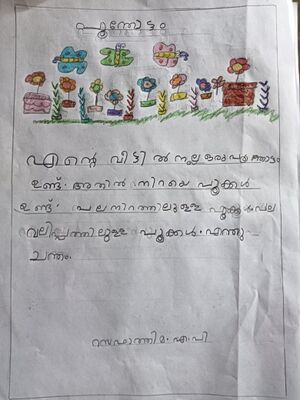 പൂന്തോട്ടം
എന്റെ വീട്ടിൽ നല്ല ഒരു പൂന്തോട്ടം
ഉണ്ട്. അതിൽ നിറയെ പൂക്കൾ
ഉണ്ട്. പല നിറത്തിലുള്ള പൂക്കൾ പല
വലിപ്പത്തിലുള്ള പൂക്കൾ. എന്തു
ചന്തം.
റസഫാത്തിമ. എ.പി